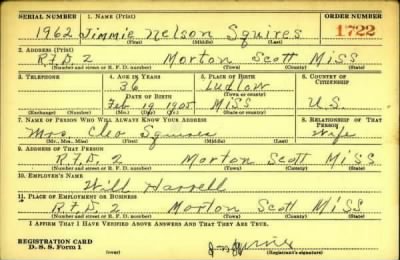 SERIAL NUMBER 1. NAME (Print) ORDER NUMBER
1962 Jimmie Nelson Squires 1722
(First) (Middle) (Last)
2. ADDRESS (Print)
R.F.D. 2 Morton Scott Miss
(Number and street or R. F. D. number) (Town) (County) (State)
3. TELEPHONE 4. AGE IN YEARS 5. PLACE OF BIRTH 6. COUNTRY OF CITIZENSHIP
36 Ludlow
DATE OF BIRTH (Town or county)
Feb 19 1905 Miss U.S.
(Exchange) (Number) (Mo.) (Day) (Yr.) (State or country)
7. NAME OF PERSON WHO WILL ALWAYS KNOW YOUR ADDRESS 8. RELATIONSHIP OF THAT PERSON
Mrs. Cleo Squires Wife
(Mr., Mrs., Miss) (First) (Middle) (Last)
9. ADDRESS OF THAT PERSON
R.F.D. 2 Morton Scott Miss
(Number and street or R. F. D. number) (Town) (County) (State)
10. EMPLOYER'S NAME
Will Harrell
11. PLACE OF EMPLOYMENT OR BUSINESS
R.F.D. 2 Morton Scott Miss
(Number and street or R. F. D. number) (Town) (County) (State)
I AFFIRM THAT I HAVE VERIFIED ABOVE ANSWERS AND THAT THEY ARE TRUE.
REGISTRATION CARD
D. S. S. Form 1
(over) (Registrant's signature)